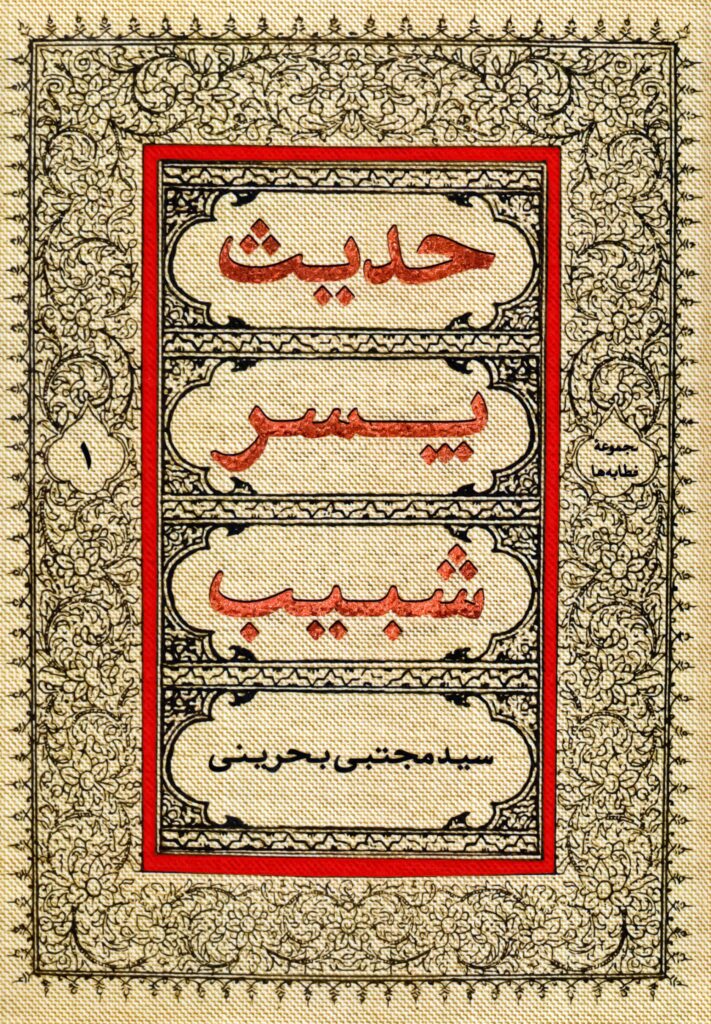 حدیث
پسر
شبیب
سید مجتبی بحرینی
مجموعهٔ
خطابه‌ها
۱